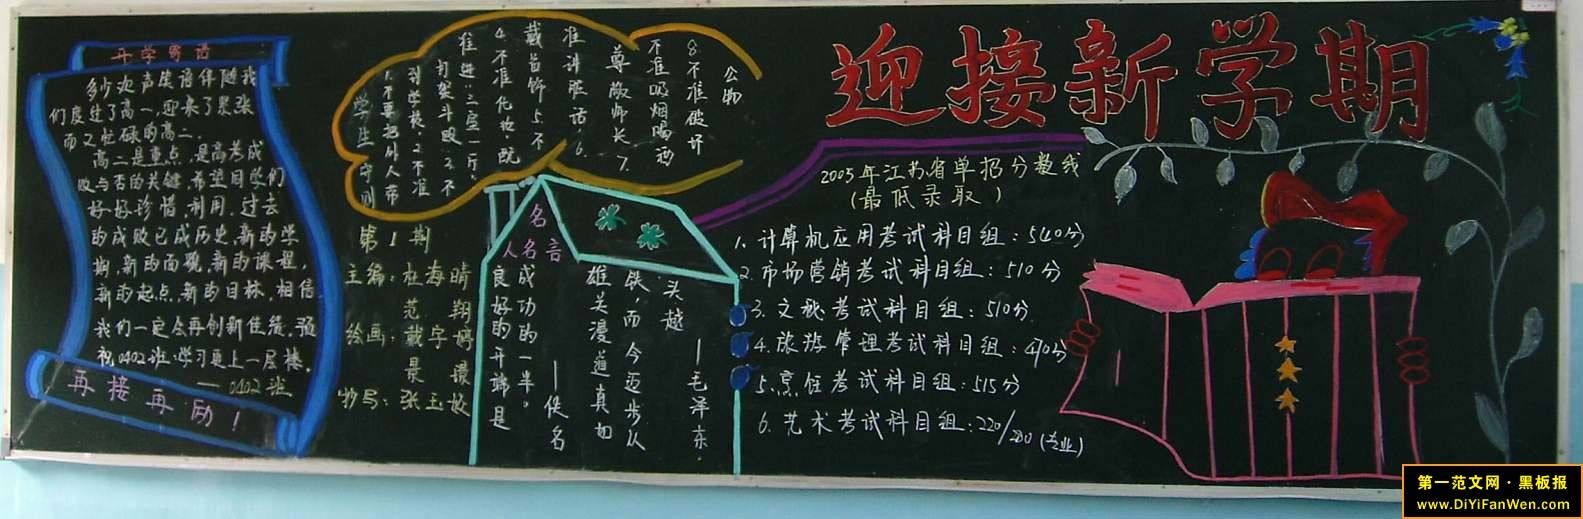 迎接新学期
开学寄语
多少次声笑语伴随我
们度过了高一,迎来了紧张
而又忙碌的高二.
高二是重点,是高考成
败与否的关键.希望同学们
好好珍惜,利用.过去
的成败已成历史,新的学
期,新的面貌,新的课程,
新的起点,新的目标,相信
我们一定会再创新佳绩.预
祝0402班学习更上一层楼.
——0402班
再接再励!
学生守则
1.不要把外人带
到学校.2.不准
打架斗殴.3.不
准进"三室一厅",
4.不准化妆,既
戴首饰.5.不
准讲脏话.6.
尊敬师长.7.
不准吸烟喝酒
8.不准破坏
公物
第1期
主编:杜海晴
范翔
绘画:戴宇婷
景璟
抄写:张玉
名人名言
良好的开端是
成功的一半。
——佚名
雄关漫道真如
铁,而今迈步从
头越
——毛泽东
2005年江苏省单招分数线
(最低录取)
1.计算机应用考试科目组:540分
2.市场营销考试科目组:510分
3.文秘考试科目组:510分
4.旅游管理考试科目组:490分
5.烹饪考试科目组:515分
6.艺术考试科目组:220/200(专业)
第一范文网·黑板报
www.DiYiFanWen.com